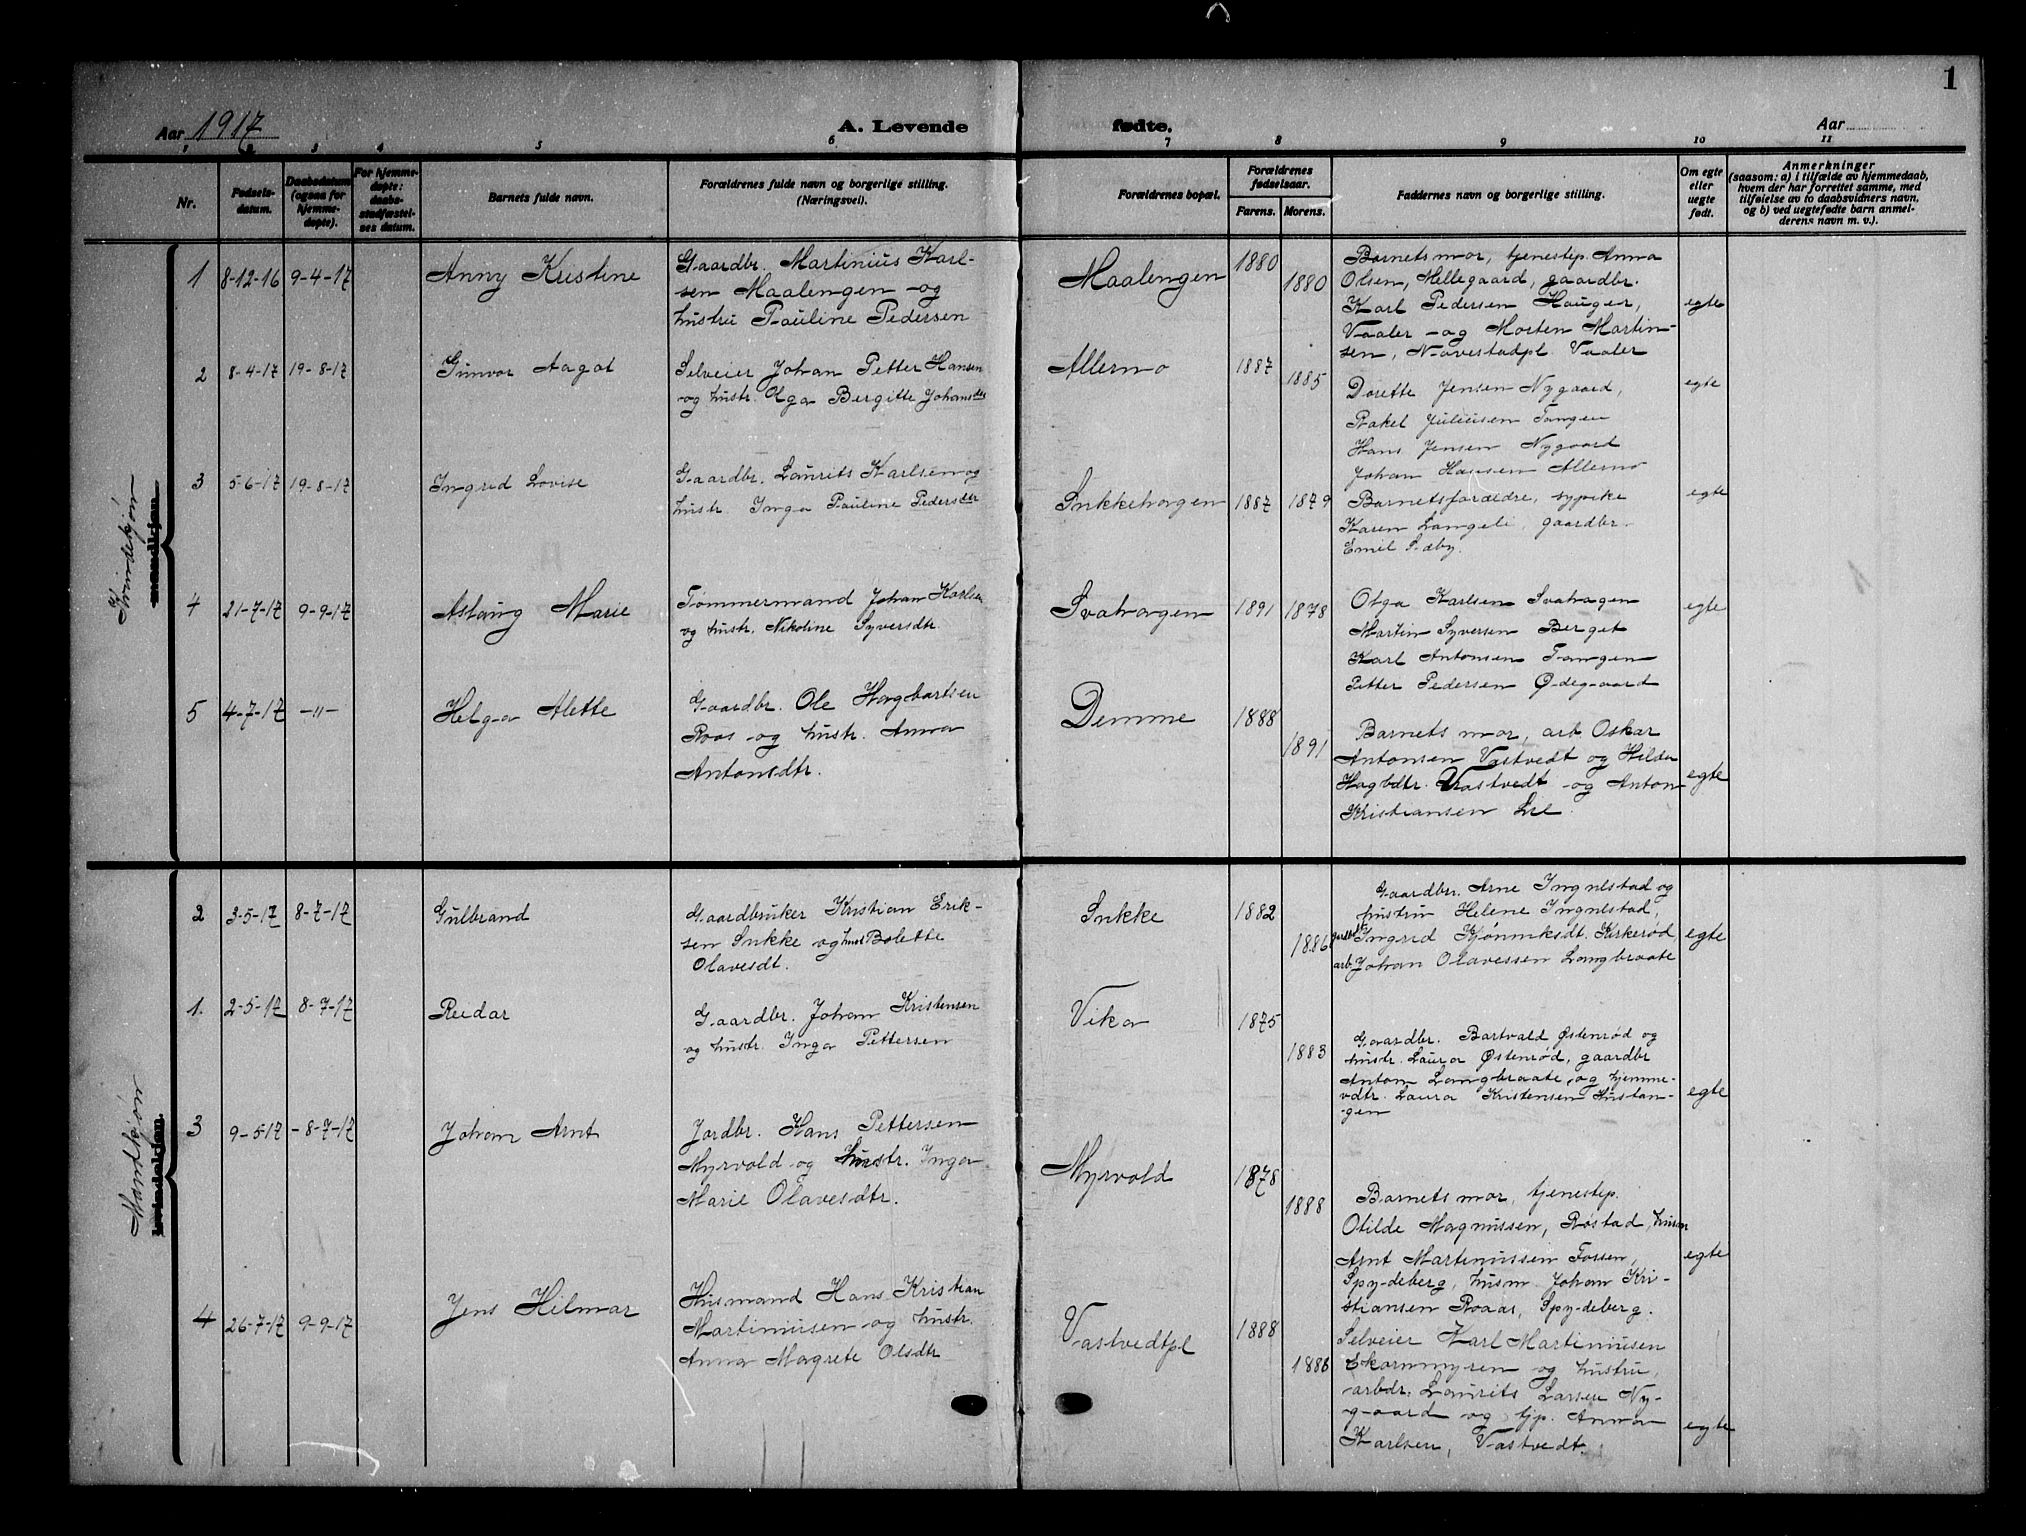 1
Aar 1917
A. Levende
fødte.
Aar
1 2 3 4 5 6 7 8 9 10 11
Nr.
Fødsels-
datum.
Daabsdatum
(ogsaa for
hjemme-
døpte).
For hjemme-
døpte:
daabs-
stadfæstel-
ses datum.
Barnets fulde navn.
Forældrenes fulde navn og borgerlige stilling.
(Næringsvei).
Forældrenes bopæl.
Forældrenes
fødselsaar.
Farens. Morens.
Faddernes navn og borgerlige stilling.
Om egte
eller
uegte
født.
Anmerkninger
(saasom: a) i tilfælde av hjemmedaab,
hvem der har forrettet samme, med
tilføielse av to daabsvidners navn,
og b) ved uegtefødte barn anmel-
derens navn m. v.).
Kvindekjøn
mandkjøn
1 8-12-16 9-4-17
Anny Kristine
Gaardbr. Martinius Karl-
sen Maalengen og
hustru Pauline Pedersen
Maalengen
1880
1880
Barnets mor, tjenestep. Anna
Olsen, Mellegaard, gaardbr.
Karl Pedersen Hauger,
Vaaler og Morten Martin-
sen, Navestadpl. Vaaler
egte
2 8-4-17 19-8-17
Gunvor Aagot
Selveier Johan Petter Hansen
og hustr. Olga Bergitte Johansdtr
Allermo
1887
1885
Dorette Jensen Nygaard,
Rakel Juliusen Tangen
Hans Jensen Nygaard
Johan Hansen Allermo
egte
3 5-6-17 19-8-17
Ingrid Lovise
Gaardbr. Laurits Karlsen og
hustr. Inga Pauline Pedersdtr
Snkkehagen
1887 1879
Barnets forældre, sypike
Karen Langeli, gaardbr.
Emil Sæby.
egte
4 21-7-17 9-9-17
Aslaug Marie
Tømmermand Johan Karlsen
og hustr. Nikoline Syversdtr.
Svahagen
1891 1878
Olga Karlsen Svahagen
Martin Syversen Berget
Karl Antonsen Tangen
Petter Pedersen Ødegaard
egte
5 4-7-17 -"-
Helga Alette
Gaardbr. Ole Hagbartsen
Roos og hustr. Anna
Antonsdtr.
Demme
1888
1891
Barnets mor, arb Oskar
Antonsen Vastvedt og Hilda
Hagbdtr. Vastvedt og Anton
Kristiansen Lie
egte
Mandkjøn
kvindekjøn.
2 3-5-17 8-7-17
Gulbrand
Gaardbruker Kristian Erik-
sen Snkke og hust Bolette
Olavesdt.
Snkke
1882
1886
Gaardbr. Arne Ingnlstad og
hustru Helene Ingnlstad,
Ingrid Kjønniksdt. Kirkerød
arb. Johan Olavessen Langbraate
egte
1. 2-5-17 8-7-17
Reidar
Gaardbr. Johan Kristensen
og hustr. Inga Pettersen
Vika
1875
1883
Gaardbr. Bartvald Østenrød og
hustr. Laura Østenrød, gaardbr
Anton Langbraate, og hjemme-
vdtr. Laura Kristensen Hustan-
gen
egte
3 9-5-17 -8-7-17
Johan Arnt
Jordbr. Hans Pettersen
Myrvold og hustr. Inga
Marie Olavesdtr.
Myrvold
1878
1888
Barnets mor, tjenestep.
Otilde Magnussen, Røstad, husm
Arnt Martinussen Fossen,
Spydeberg, husm. Johan Kri-
stiansen Roaas, Spydeberg.
egte
4 26-7-17 9-9-17
Jens Hilmar
Husmand Hans Kristian
Martinusen og hustr.
Anna Magrete Olsdtr
Vastvedtpl
1888
1886
Selveier Karl Martinusen
Skarnmyren og hustru,
arbdr. Laurits Larsen Ny-
gaard og tjp. Anna
Karlsen, Vastvedt.
egte